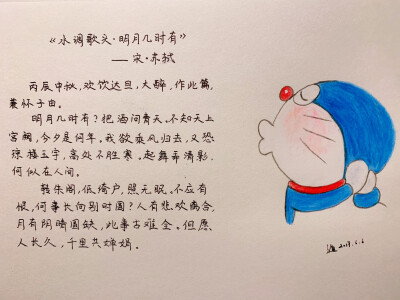 《水调歌头·明月几时有》
——宋·苏轼
丙辰中秋,欢饮达旦,大醉,作此篇,
兼怀子由。
明月几时有?把酒问青天。不知天上
宫阙,今夕是何年。我欲乘风归去,又恐
琼楼玉宇,高处不胜寒。起舞弄清影,
何似在人间。
转朱阁,低绮户,照无眠。不应有
恨,何事长向别时圆?人有悲欢离合,
月有阴晴圆缺,此事古难全。但愿
人长久,千里共婵娟。
2017.6.6